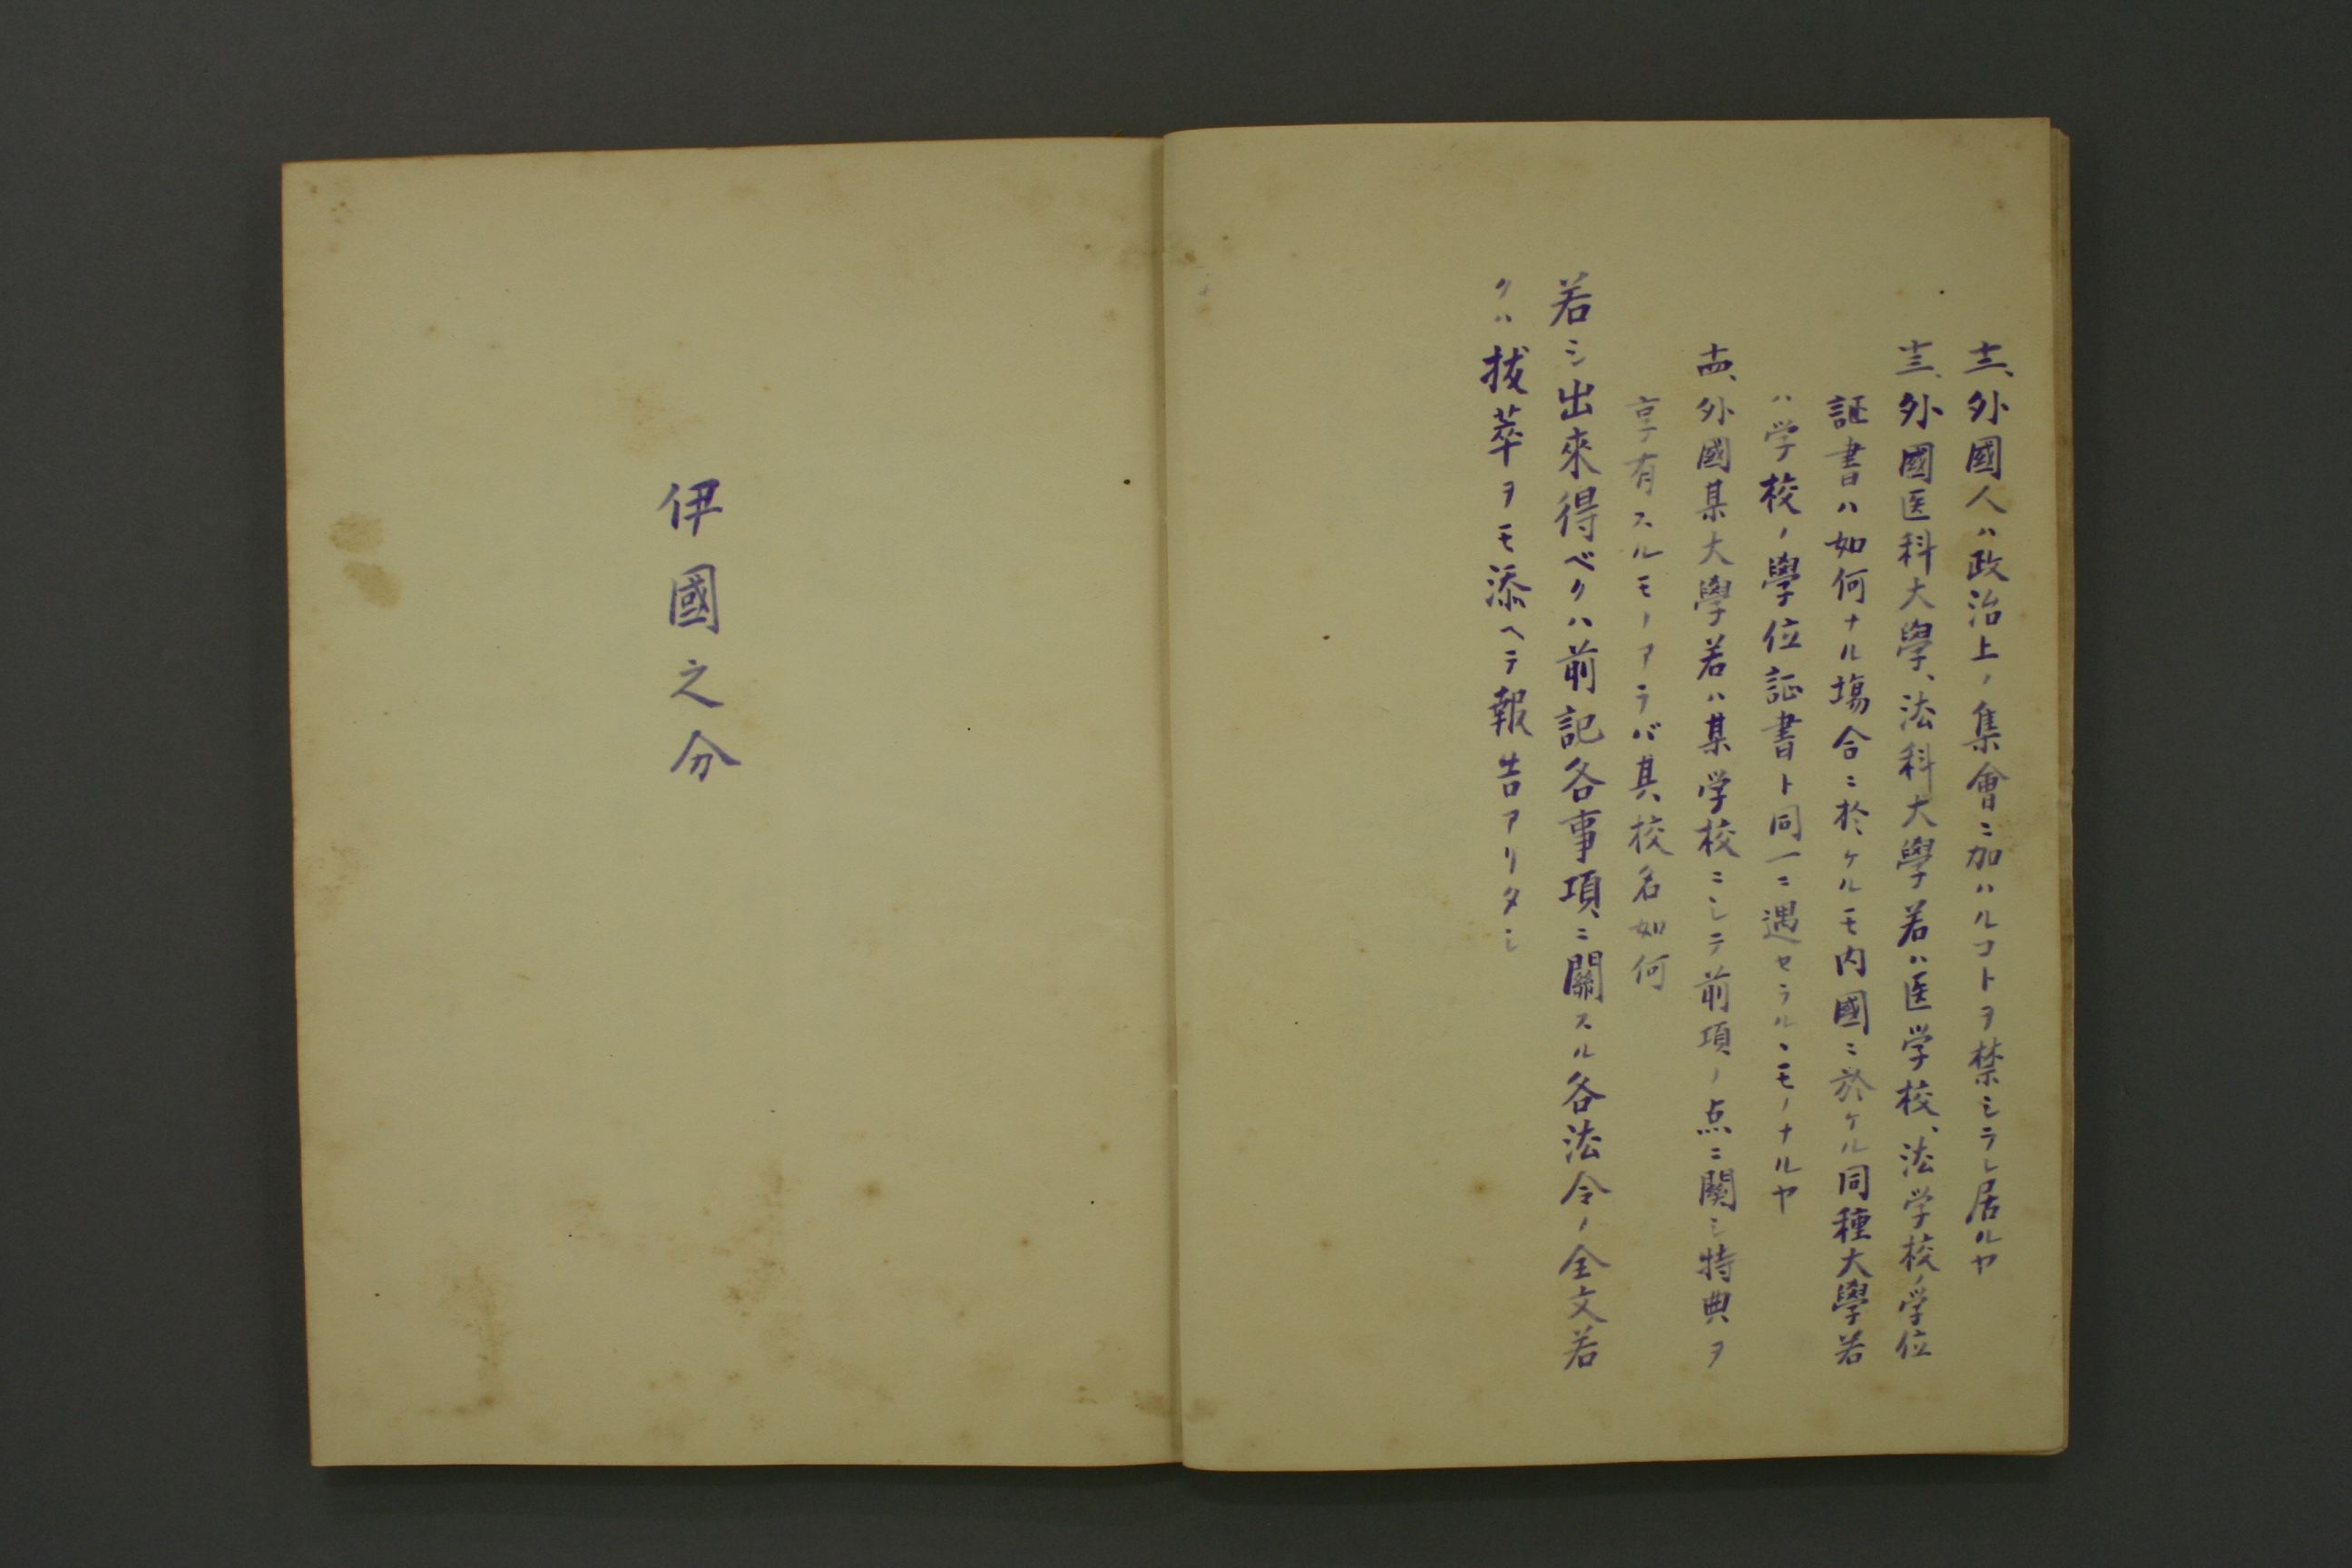 十二、外國人ハ政治上ノ集會ニ加ハルコトヲ禁シラレ居ルヤ
十三、外國医科大學、法科大學若ハ医学校、法学校ノ学位
証書ハ如何ナル塲合ニ於ケルモ内國ニ於ケル同種大學若
ハ学校ノ學位証書ト同一ニ遇セラルヽモノナルヤ
十四、外國某大學若ハ某学校ニシテ前項ノ点ニ関シ特典ヲ
享有スルモノアラバ其校名如何
若シ出來得ベクハ前記各事項ニ關スル各法令ノ全文若
クハ拔萃ヲモ添ヘテ報告アリタシ
伊國之分